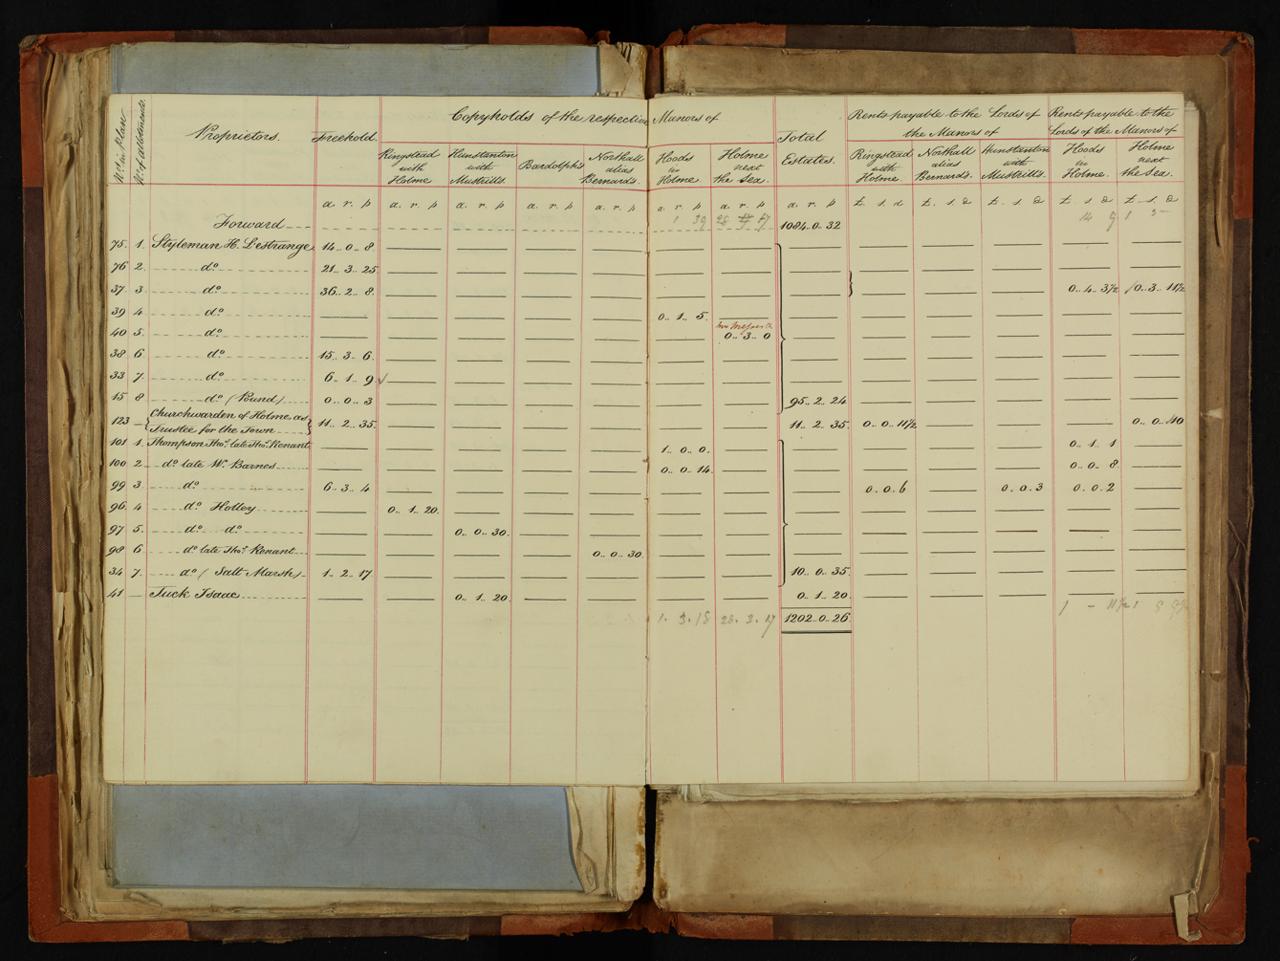 No. in Plan
No. of allotments.
Proprietors.
Freehold.
Copyholds of the respective Manors of
Ringstead with Holme
Hunstanton with Mustrills.
Bardolphs
Northall alias Bernards.
Hoods in Holme.
Holme next the Sea.
Total Estates.
Rents payable to the Lords of the Manors of
Ringstead with Holme.
Northall alias Bernards.
Hunstanton with Mustrills.
Rents payable to the Lords of the Manors of
Hoods in Holme.
Holme next the Sea.
a. r. p a. r. p a. r. p a. r. p a. r. p a. r. p a. r. p a. r. p £. s. d £. s. d £. s. d £. s. d £. s. d
Forward 1 39 1084.. 0.. 32 14
75. 1. Styleman H. L'estrange 14.. 0.. 8
76 2. do. 21.. 3.. 25
37. 3 do. 36.. 2.. 8. 0.. 4.. 3½ 0.. 3.. 11½
39 4 do. 0.. 1.. 5.
40 5. do. 0.. 3.. 0
38 6 do. 15.. 3.. 6.
33 7. do. 6.. 1.. 9
15 8 do. (Pound) 0.. 0.. 3 95.. 2.. 24
123 — Churchwarden of Holme as Trustee for the Town 11.. 2.. 35. 11.. 2.. 35. 0.. 0.. 11½ 0.. 0.. 10
101 1. Thompson Thos. late Thos. Kenant 1.. 0.. 0. 0.. 1.. 1
100 2 do. late Wm. Barnes 0.. 0.. 14. 0.. 0.. 8.
99 3 do. 6.. 3.. 4 0.. 0.. 6 0.. 0.. 3 0.. 0.. 2
96. 4 do. Holley 0.. 1.. 20.
97 5. do. do. 0.. 0.. 30.
98 6 do. late Thos. Kenant 0.. 0.. 30.
34 7. do. (Salt Marsh) 1.. 2.. 17 10.. 0.. 35.
41 — Tuck Isaac 0.. 1.. 20. 0.. 1.. 20.
1. 3. 18 28. 3. 17 1202.. 0.. 26